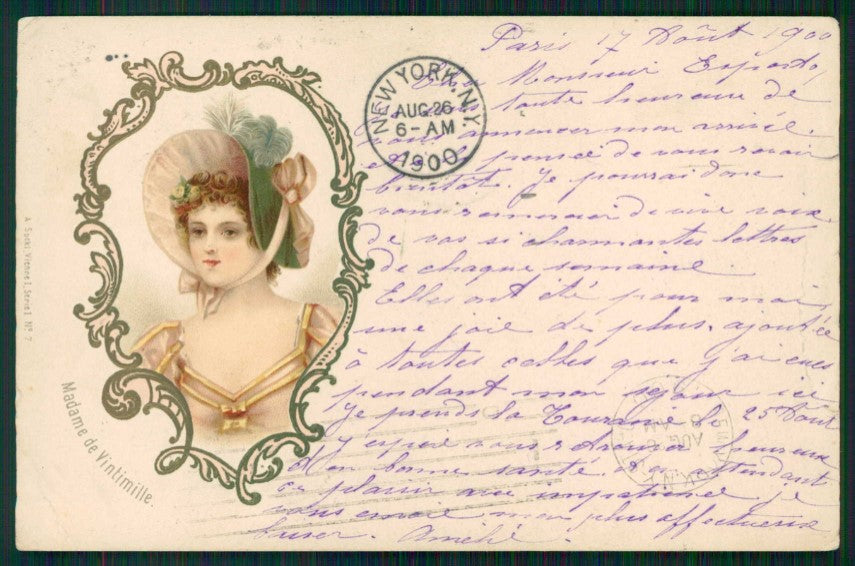 Paris 17 Août 1900
Cher Monsieur Esposito,
toute heureuse de
vous annoncer mon arrivée
et la pensée de vous revoir
bientôt. Je pourrai donc
vous remercier de vive voix
de vos si charmantes lettres
de chaque semaine.
Elles ont été pour moi
une joie de plus, ajoutée
à toutes celles que j'ai eues
pendant mon séjour ici
Je prends la Touraine le 25 Août
J'y espère vous retrouver heureux
et en bonne santé et en attendant
ce plaisir avec impatience je
vous envoie mon plus affectueux
baiser. Amélie.
NEW YORK, N.Y.
AUG 26
6-AM
1900
A. Sockl, Vienne I, Serie I Nº 7
Madame de Vintimille.